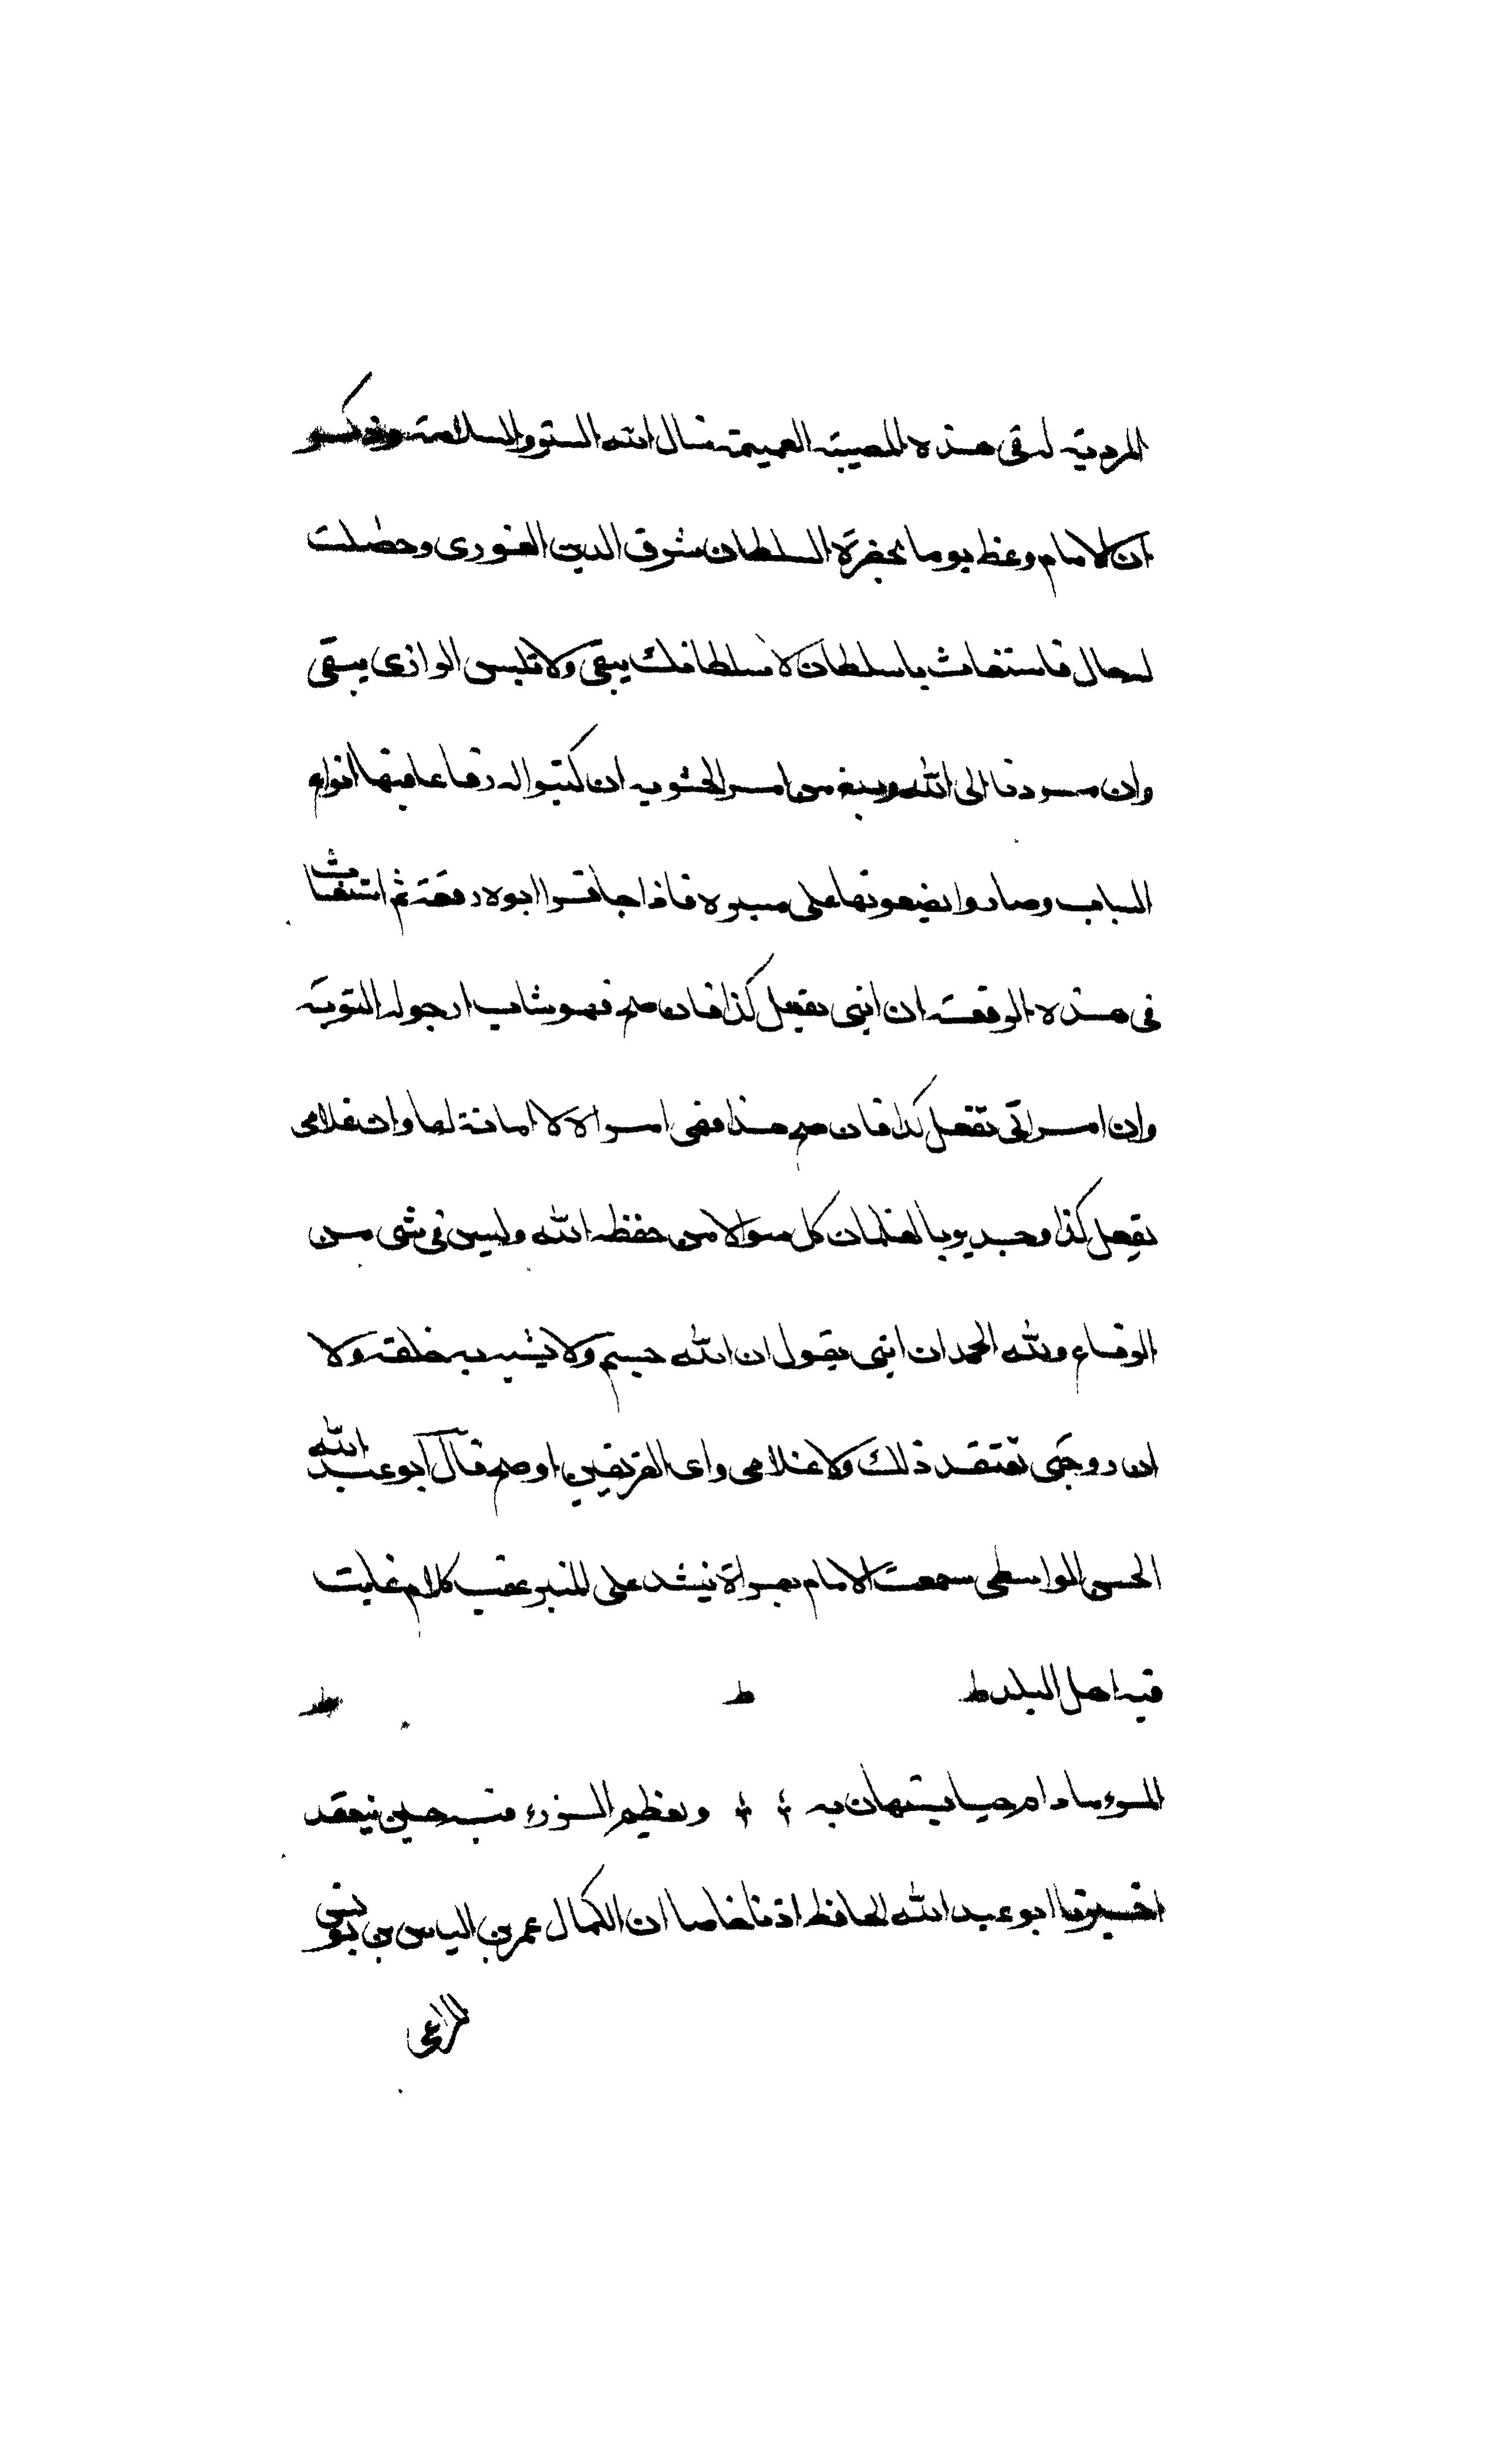 المردية لدقى هذه المصيبة العميمة نسال الله الستر والسلامة وذكر
ان الامام وعظ يوما بحضرة السلطان شرف الدين الغورى وحصلت
لـحال فاستغاث ياسلطان لا سلطانك يبقى ولا تلبس الرازى يبقى
وان مردنا الى الله وبلغ من امر الحشويه ان كتبوا له رقاعا فيها انواع
السباب وصاروا يضعونها على منبره فاذا جا قراا بوه رقعة ثم استغاث
فى هذه الرقعة ان ابنى يفعل كذا فان صح فهو شاب ارجو له التوبة
وان امراتى تفعل كذا فان صح هذا فهى امراة لا امانة لها وان غلامى
يفعل كذا وجدير بالغلمان كل سوالا من حفظه الله وليس فى شى من
الرقاع ولله الحمد ان ابنى يقول ان الله جسم ولا يشبه به خلقه ولا
ان زوجتى تعتقد ذلك ولا غلامى واى الفريقين اوضح قال ابو عبد الله
الحسن الواسطى سمعت الامام بهراة ينشد على المنبر عقب كلام عاتب
فيه اهل البلد ط ط ط
المرء مادام حيا يستهان به ؞ ؞ ويعظم الرزء فيه حين يفتقد
اخبرنا ابو عبد الله الحافظ اذنا خاصا ان الكمال عمر بن الياس بن يونس
المراغى